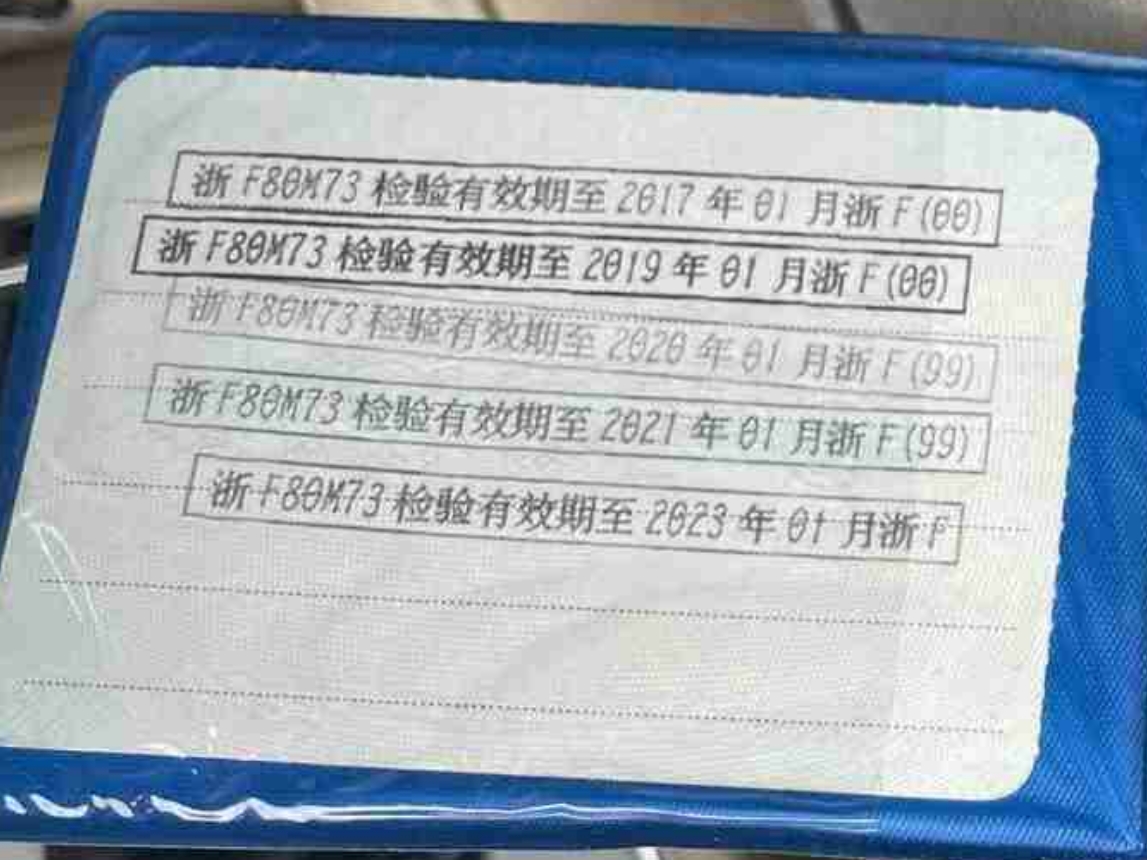 浙 F80M73 检验有效期至 2017 年 01 月浙 F(00)
浙 F80M73 检验有效期至 2019 年 01 月浙 F(00)
浙 F80M73 检验有效期至 2020 年 01 月浙 F(99)
浙 F80M73 检验有效期至 2021 年 01 月浙 F(99)
浙 F80M73 检验有效期至 2023 年 01 月浙 F